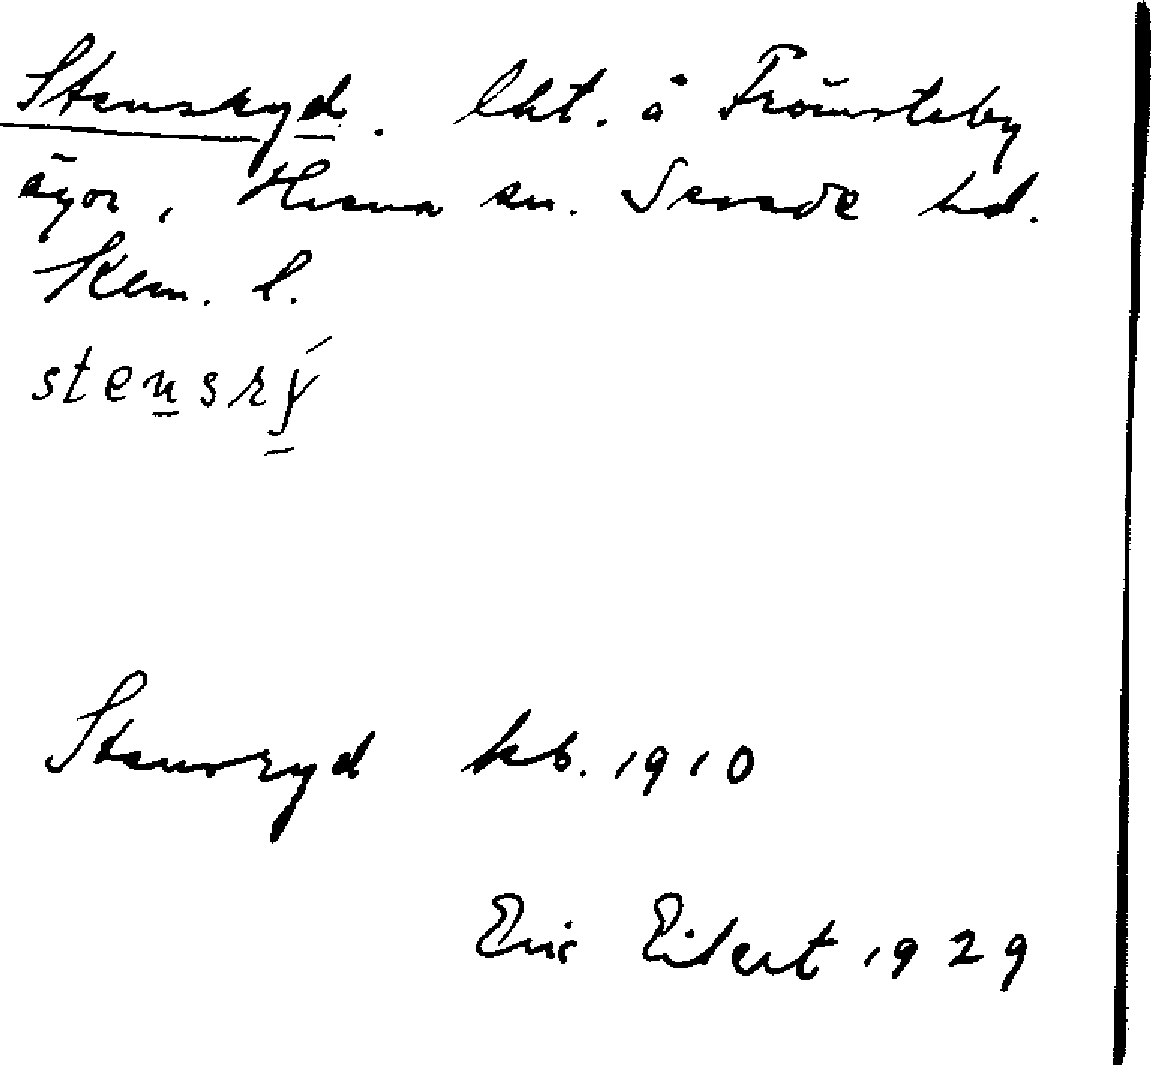 Stensryd. lht. å Trömsteby
ägor, Hesna sn. Sunde hd.
Klm. l.
stensrý
Stensryd kb. 1910
Eric Eibert 1929